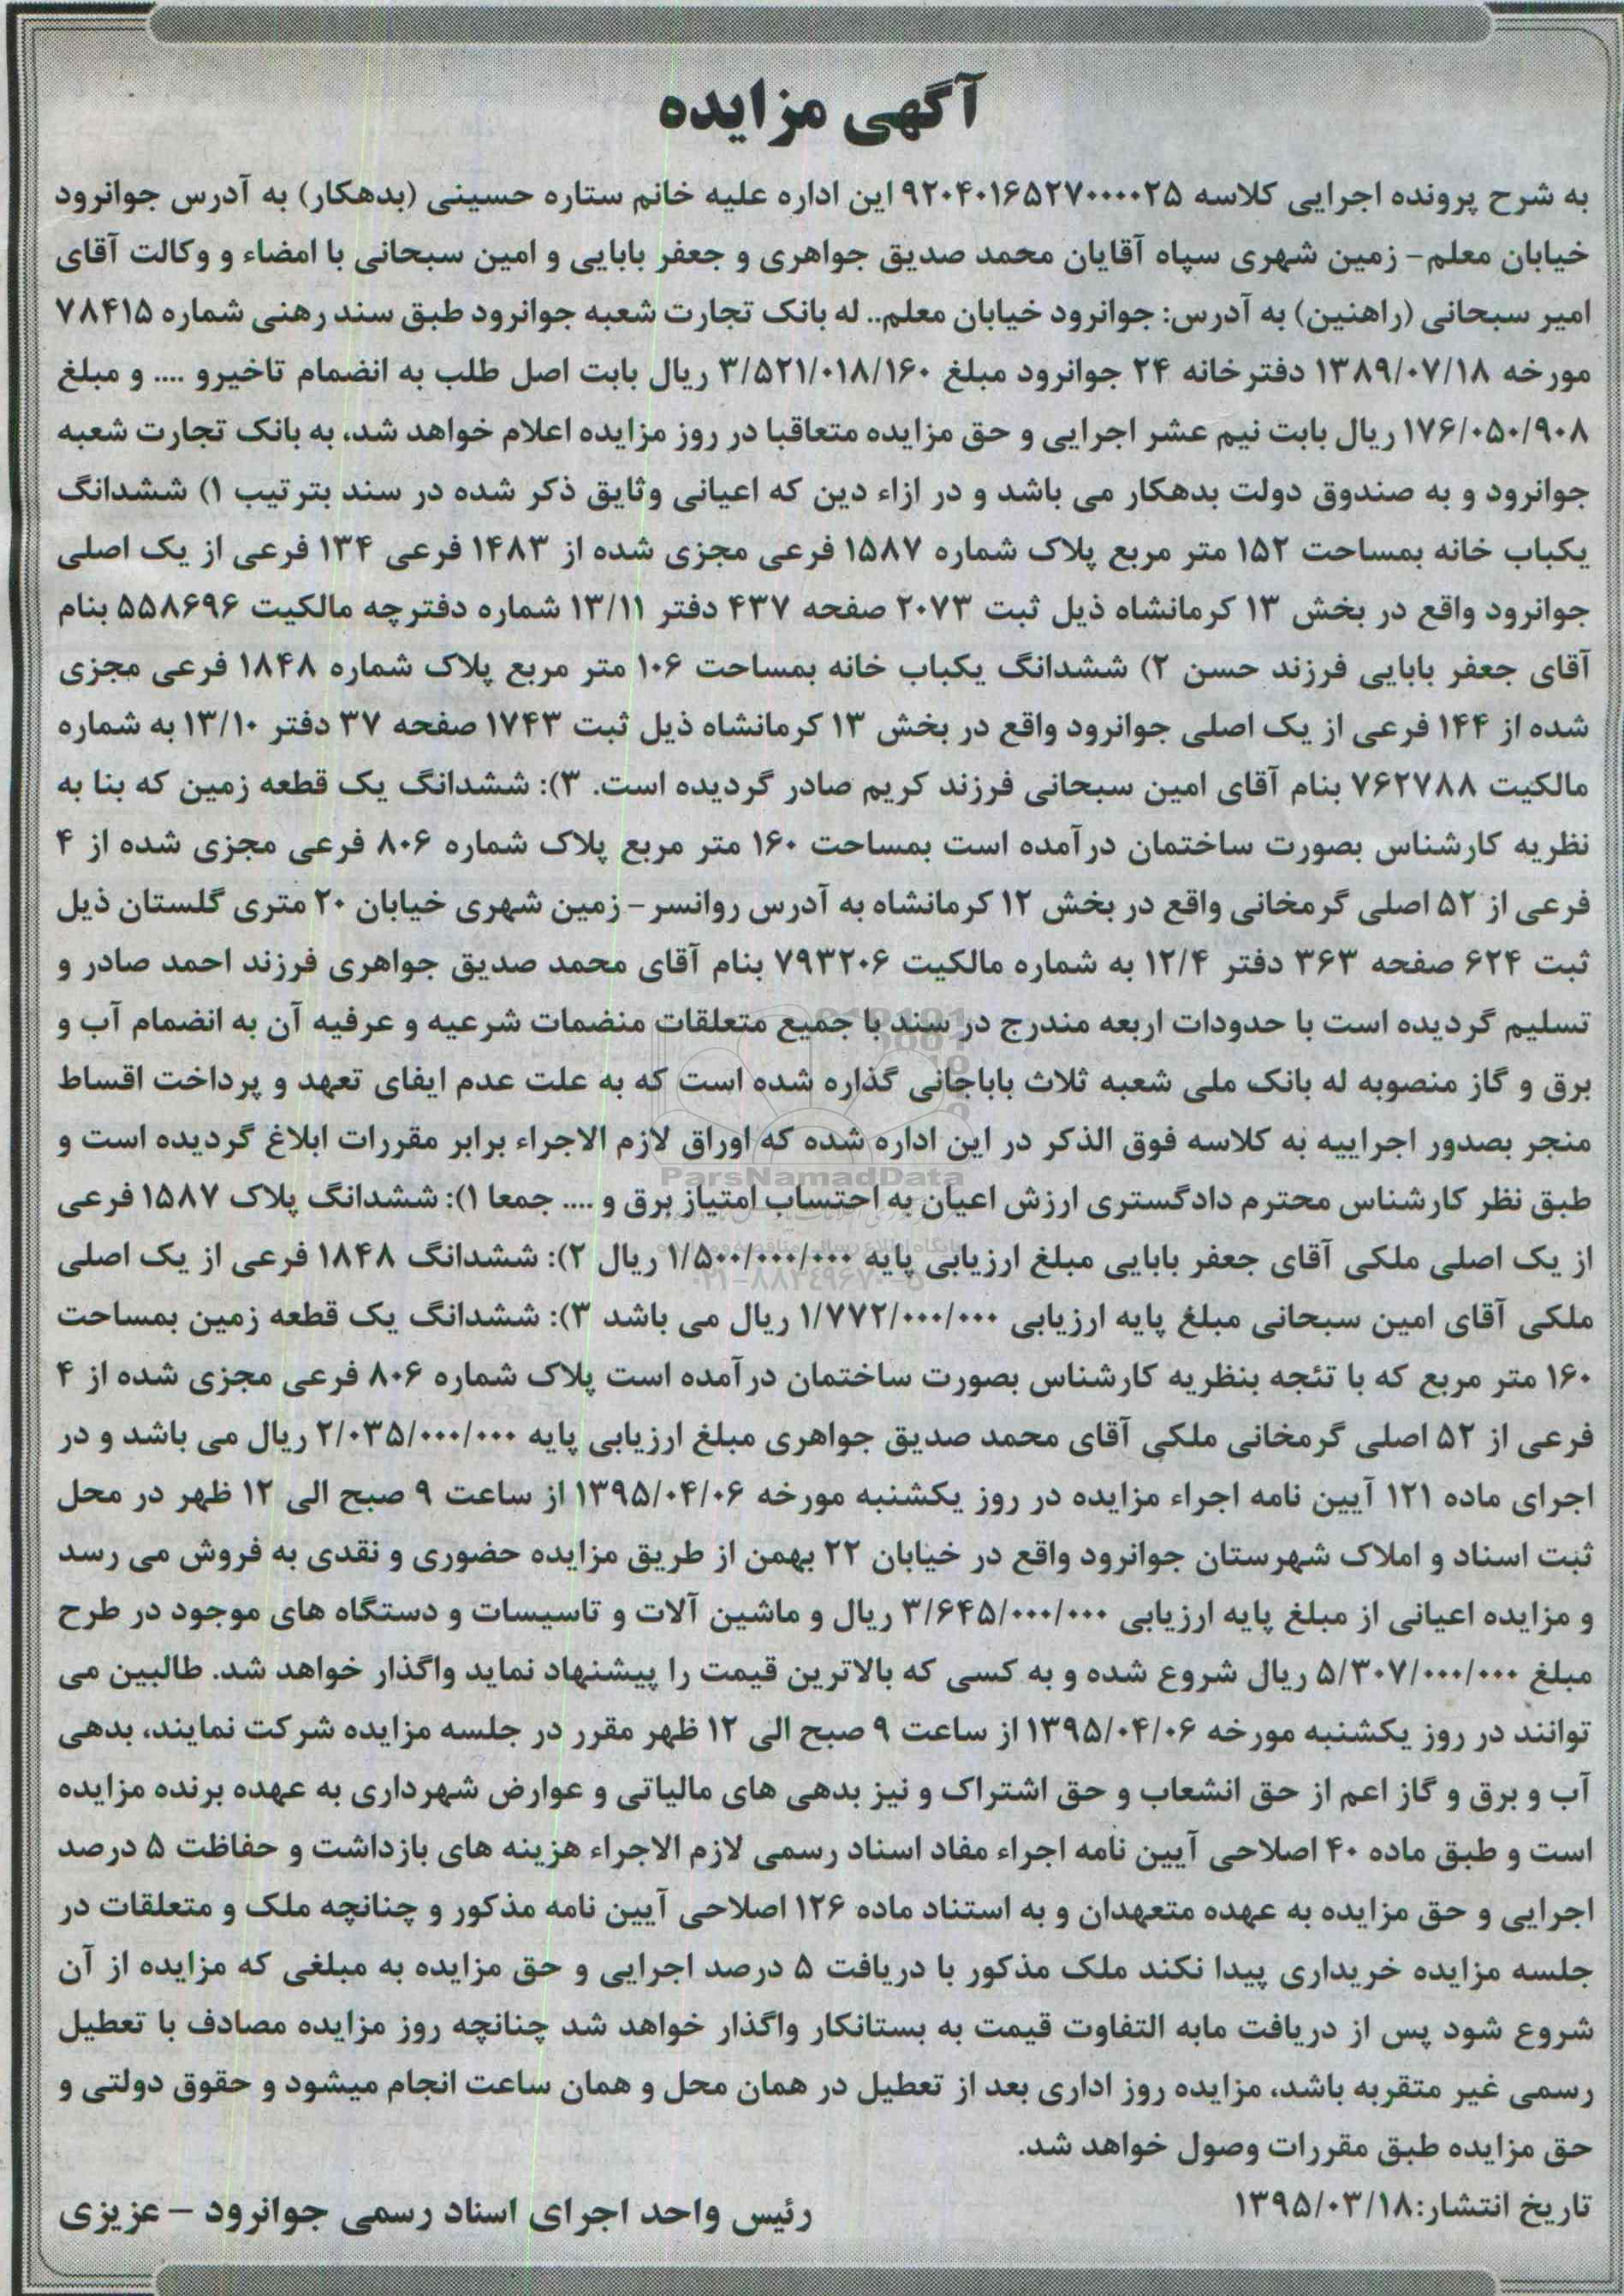 آگهی مزایده
به شرح پرونده اجرایی کلاسه ۹۲۰۴۰۱۶۵۲۷۰۰۰۰۲۵ این اداره علیه خانم ستاره حسینی (بدهکار) به آدرس جوانرود
خیابان معلم- زمین شهری سپاه آقایان محمد صدیق جواهری و جعفر بابایی و امین سبحانی با امضاء و وکالت آقای
امیر سبحانی (راهنین) به آدرس: جوانرود خیابان معلم.. له بانک تجارت شعبه جوانرود طبق سند رهنی شماره ۷۸۴۱۵
مورخه ۱۳۸۹/۰۷/۱۸ دفترخانه ۲۴ جوانرود مبلغ ۳/۵۲۱/۰۱۸/۱۶۰ ریال بابت اصل طلب به انضمام تاخیرو .... و مبلغ
۱۷۶/۰۵۰/۹۰۸ ریال بابت نیم عشر اجرایی و حق مزایده متعاقبا در روز مزایده اعلام خواهد شد، به بانک تجارت شعبه
جوانرود و به صندوق دولت بدهکار می باشد و در ازاء دین که اعیانی وثایق ذکر شده در سند بترتیب ۱) ششدانگ
یکباب خانه بمساحت ۱۵۲ متر مربع پلاک شماره ۱۵۸۷ فرعی مجزی شده از ۱۴۸۳ فرعی ۱۳۴ فرعی از یک اصلی
جوانرود واقع در بخش ۱۳ کرمانشاه ذیل ثبت ۲۰۷۳ صفحه ۴۳۷ دفتر ۱۳/۱۱ شماره دفترچه مالکیت ۵۵۸۶۹۶ بنام
آقای جعفر بابایی فرزند حسن ۲) ششدانگ یکباب خانه بمساحت ۱۰۶ متر مربع پلاک شماره ۱۸۴۸ فرعی مجزی
شده از ۱۴۴ فرعی از یک اصلی جوانرود واقع در بخش ۱۳ کرمانشاه ذیل ثبت ۱۷۴۳ صفحه ۳۷ دفتر ۱۳/۱۰ به شماره
مالکیت ۷۶۲۷۸۸ بنام آقای امین سبحانی فرزند کریم صادر گردیده است. ۳): ششدانگ یک قطعه زمین که بنا به
نظریه کارشناس بصورت ساختمان درآمده است بمساحت ۱۶۰ متر مربع پلاک شماره ۸۰۶ فرعی مجزی شده از ۴
فرعی از ۵۲ اصلی گرمخانی واقع در بخش ۱۲ کرمانشاه به آدرس روانسر- زمین شهری خیابان ۲۰ متری گلستان ذیل
ثبت ۶۲۴ صفحه ۳۶۳ دفتر ۱۲/۴ به شماره مالکیت ۷۹۳۲۰۶ بنام آقای محمد صدیق جواهری فرزند احمد صادر و
تسلیم گردیده است با حدودات اربعه مندرج در سند با جمیع متعلقات منضمات شرعیه و عرفیه آن به انضمام آب و
برق و گاز منصوبه له بانک ملی شعبه ثلاث باباجانی گذاره شده است که به علت عدم ایفای تعهد و پرداخت اقساط
منجر بصدور اجراییه به کلاسه فوق الذکر در این اداره شده که اوراق لازم الاجراء برابر مقررات ابلاغ گردیده است و
ParsNamadData
طبق نظر کارشناس محترم دادگستری ارزش اعیان به احتساب امتیاز برق و .... جمعا ۱): ششدانگ پلاک ۱۵۸۷ فرعی
از یک اصلی ملکی آقای جعفر بابایی مبلغ ارزیابی پایه ۱/۵۰۰/۰۰۰/۰۰۰ ریال ۲): ششدانگ ۱۸۴۸ فرعی از یک اصلی
ملکی آقای امین سبحانی مبلغ پایه ارزیابی ۱/۷۷۲/۰۰۰/۰۰۰ ریال می باشد ۳): ششدانگ یک قطعه زمین بمساحت
۱۶۰ متر مربع که با تئجه بنظریه کارشناس بصورت ساختمان درآمده است پلاک شماره ۸۰۶ فرعی مجزی شده از ۴
فرعی از ۵۲ اصلی گرمخانی ملکی آقای محمد صدیق جواهری مبلغ ارزیابی پایه ۲/۰۳۵/۰۰۰/۰۰۰ ریال می باشد و در
اجرای ماده ۱۲۱ آیین نامه اجراء مزایده در روز یکشنبه مورخه ۱۳۹۵/۰۴/۰۶ از ساعت ۹ صبح الی ۱۲ ظهر در محل
ثبت اسناد و املاک شهرستان جوانرود واقع در خیابان ۲۲ بهمن از طریق مزایده حضوری و نقدی به فروش می رسد
و مزایده اعیانی از مبلغ پایه ارزیابی ۳/۶۴۵/۰۰۰/۰۰۰ ریال و ماشین آلات و تاسیسات و دستگاه های موجود در طرح
مبلغ ۵/۳۰۷/۰۰۰/۰۰۰ ریال شروع شده و به کسی که بالاترین قیمت را پیشنهاد نماید واگذار خواهد شد. طالبین می
توانند در روز یکشنبه مورخه ۱۳۹۵/۰۴/۰۶ از ساعت ۹ صبح الی ۱۲ ظهر مقرر در جلسه مزایده شرکت نمایند، بدهی
آب و برق و گاز اعم از حق انشعاب و حق اشتراک و نیز بدهی های مالیاتی و عوارض شهرداری به عهده برنده مزایده
است و طبق ماده ۴۰ اصلاحی آیین نامه اجراء مفاد اسناد رسمی لازم الاجراء هزینه های بازداشت و حفاظت ۵ درصد
اجرایی و حق مزایده به عهده متعهدان و به استناد ماده ۱۲۶ اصلاحی آیین نامه مذکور و چنانچه ملک و متعلقات در
جلسه مزایده خریداری پیدا نکند ملک مذکور با دریافت ۵ درصد اجرایی و حق مزایده به مبلغی که مزایده از آن
شروع شود پس از دریافت مابه التفاوت قیمت به بستانکار واگذار خواهد شد چنانچه روز مزایده مصادف با تعطیل
رسمی غیر متقربه باشد، مزایده روز اداری بعد از تعطیل در همان محل و همان ساعت انجام میشود و حقوق دولتی و
حق مزایده طبق مقررات وصول خواهد شد.
تاریخ انتشار:۱۳۹۵/۰۳/۱۸
رئیس واحد اجرای اسناد رسمی جوانرود – عزیزی